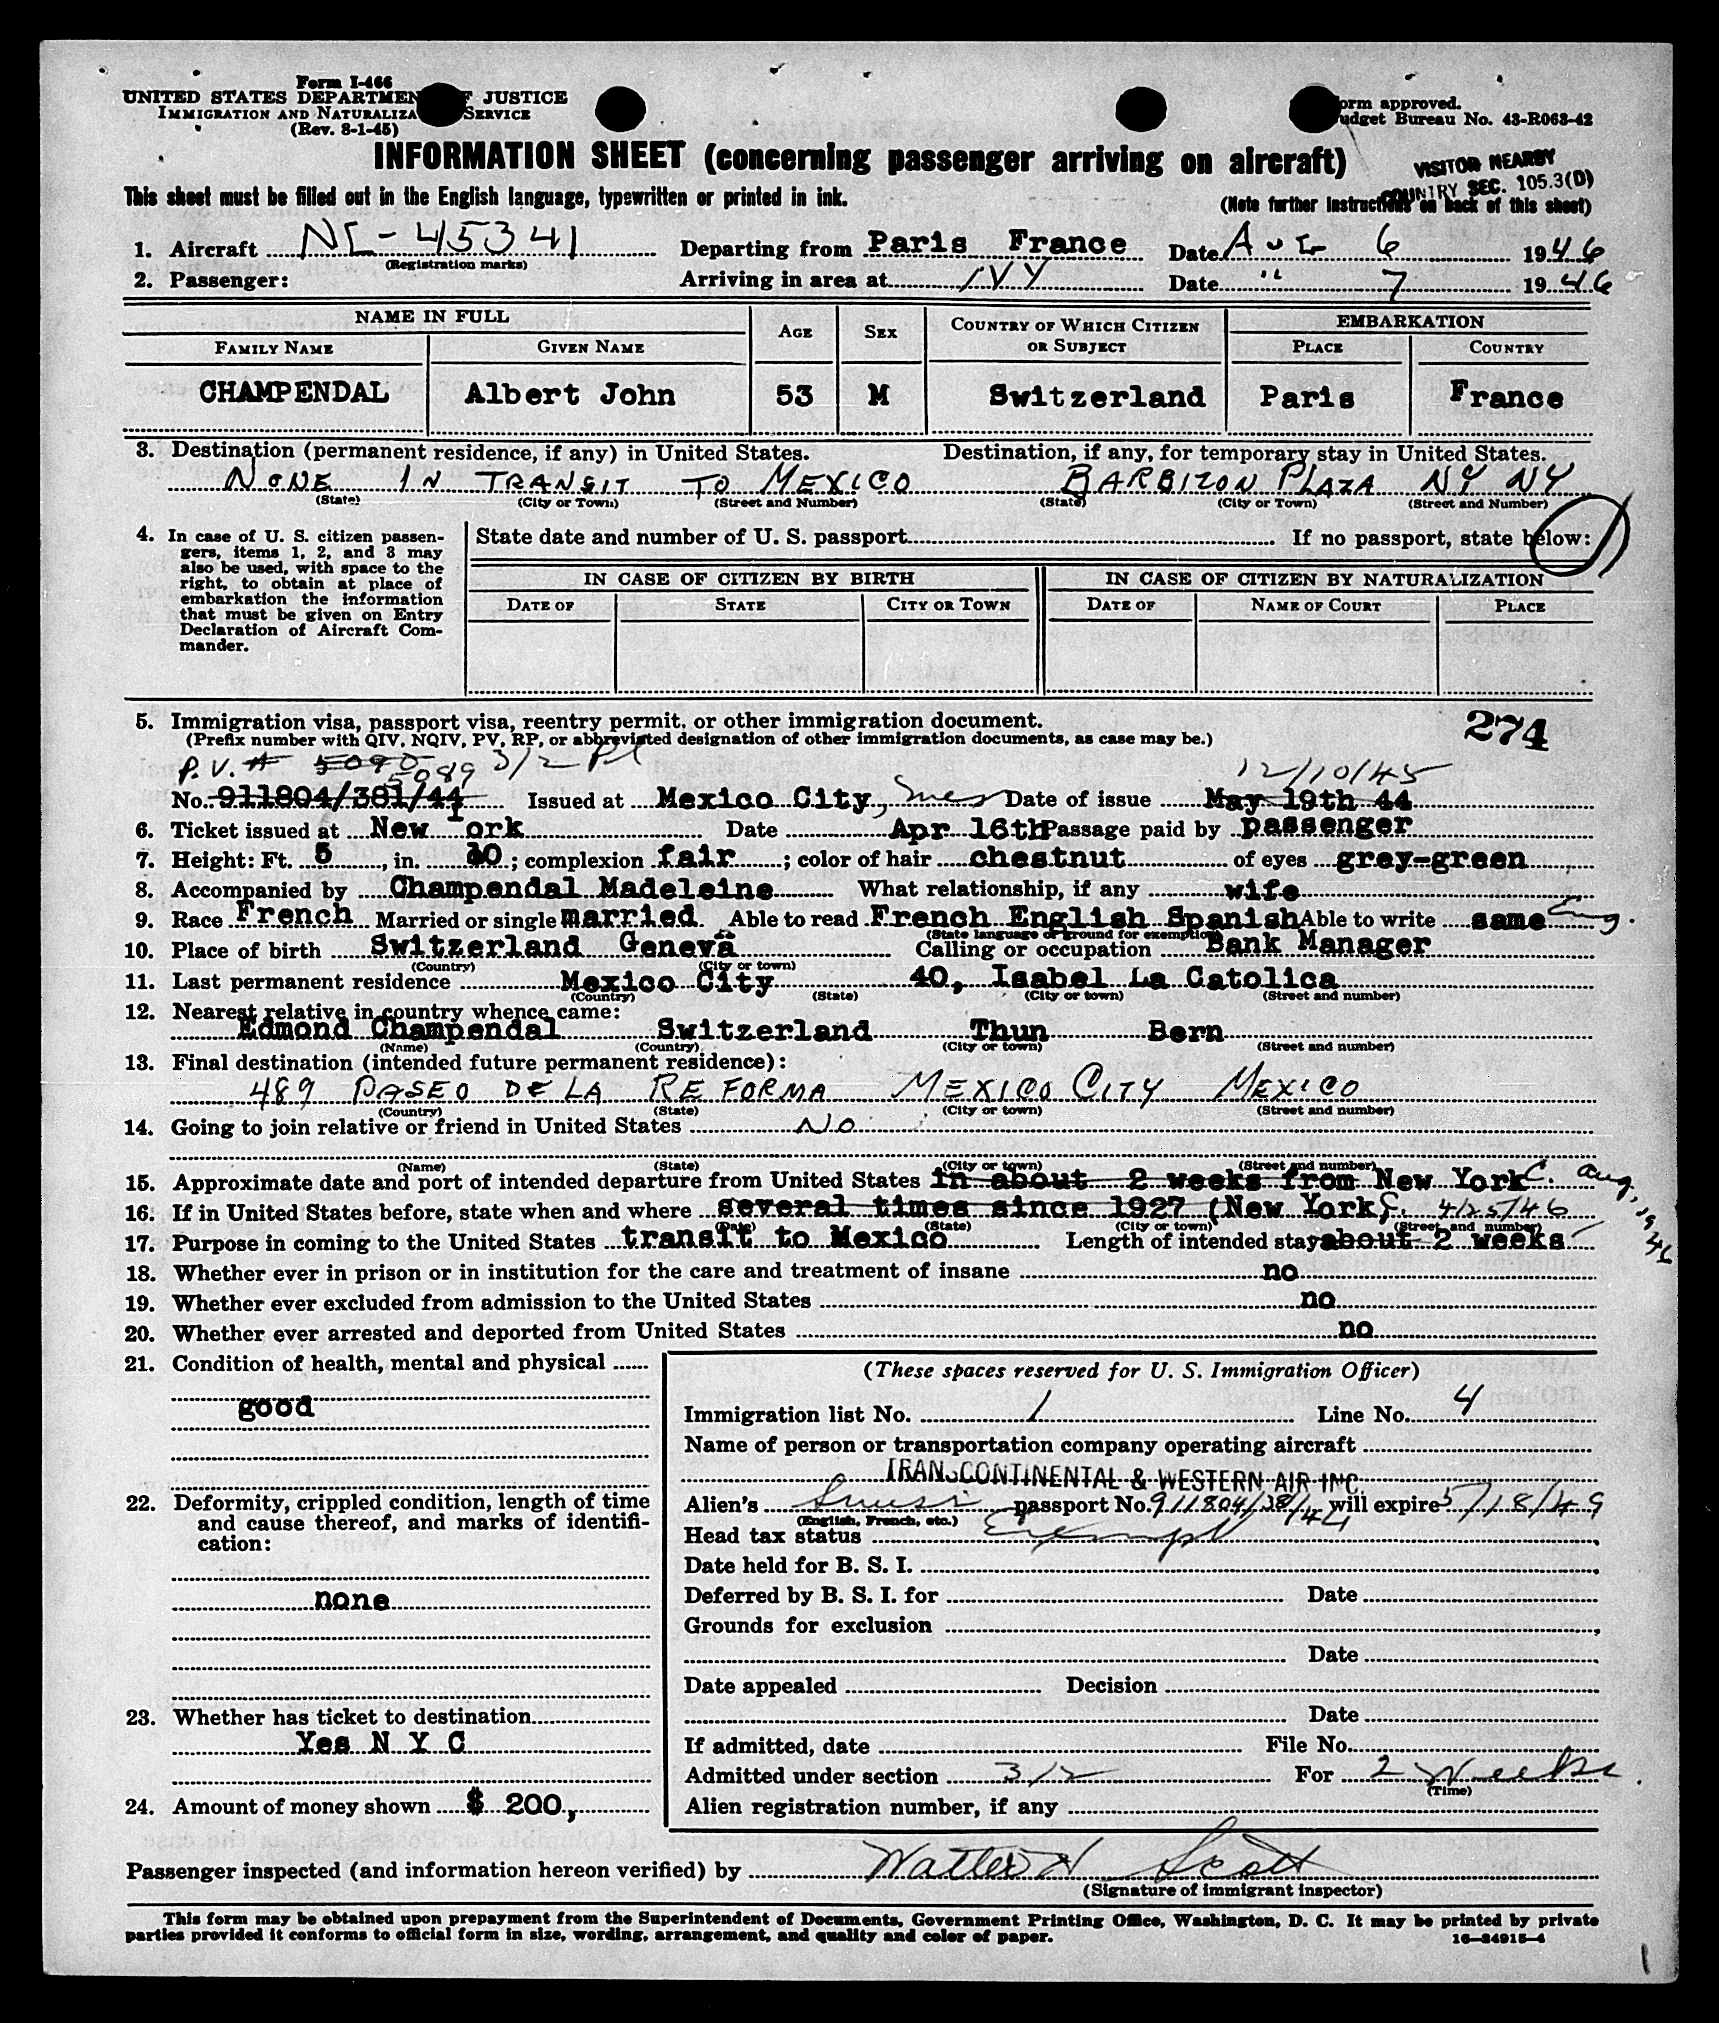 Form I-466
UNITED STATES DEPARTMENT OF JUSTICE
IMMIGRATION AND NATURALIZA SERVICE
(Rev. 8-1-45)
orm approved.
udget Bureau No. 43-R063-42
INFORMATION SHEET (concerning passenger arriving on aircraft)
VISITOR NEARBY
COUNTRY SEC. 105.3(D)
This sheet must be filled out in the English language, typewritten or printed in ink.
(Note further instructions on back of this sheet)
1. Aircraft NC-45341 Departing from Paris France Date AUG 6 1946
(Registration marks)
2. Passenger: Arriving in area at NY Date " 7 1946
NAME IN FULL AGE SEX COUNTRY OF WHICH CITIZEN OR SUBJECT EMBARKATION
FAMILY NAME GIVEN NAME PLACE COUNTRY
CHAMPENDAL Albert John 53 M Switzerland Paris France
3. Destination (permanent residence, if any) in United States. Destination, if any, for temporary stay in United States.
NONE IN TRANSIT TO MEXICO BARBIZON PLAZA NY NY
(State) (City or Town) (Street and Number) (State) (City or Town) (Street and Number)
4. In case of U. S. citizen passengers, items 1, 2, and 3 may also be used, with space to the right, to obtain at place of embarkation the information that must be given on Entry Declaration of Aircraft Commander.
State date and number of U. S. passport If no passport, state below:
IN CASE OF CITIZEN BY BIRTH IN CASE OF CITIZEN BY NATURALIZATION
DATE OF STATE CITY OR TOWN DATE OF NAME OF COURT PLACE
5. Immigration visa, passport visa, reentry permit, or other immigration document.
274
(Prefix number with QIV, NQIV, PV, RP, or abbreviated designation of other immigration documents, as case may be.)
P.V. # 5090 5089 3/2 12/10/45
No. 911804/381/44 Issued at Mexico City, Date of issue May 19th 44
6. Ticket issued at New York Date Apr 16th Passage paid by passenger
7. Height: Ft. 5, in. 10; complexion fair; color of hair chestnut of eyes grey-green
8. Accompanied by Champendal Madeleine What relationship, if any wife
9. Race French Married or single married Able to read French English Spanish Able to write same Eng.
(State language or ground for exemption)
10. Place of birth Switzerland Geneva Calling or occupation Bank Manager
(Country) (City or town)
11. Last permanent residence Mexico City 40, Isabel La Catolica
(Country) (State) (City or town) (Street and number)
12. Nearest relative in country whence came:
Edmond Champendal Switzerland Thun Bern
(Name) (Country) (City or town) (Street and number)
13. Final destination (intended future permanent residence):
489 PASEO DE LA REFORMA MEXICO CITY MEXICO
(Country) (State) (City or town) (Street and number)
14. Going to join relative or friend in United States NO
(Name) (State) (City or town) (Street and number)
15. Approximate date and port of intended departure from United States in about 2 weeks from New York C. Aug, 1946
16. If in United States before, state when and where several times since 1927 (New York C. 4/25/46
(Date) (State) (City or town) (Street and number)
17. Purpose in coming to the United States transit to Mexico Length of intended stay about 2 weeks
18. Whether ever in prison or in institution for the care and treatment of insane no
19. Whether ever excluded from admission to the United States no
20. Whether ever arrested and deported from United States no
21. Condition of health, mental and physical
good
22. Deformity, crippled condition, length of time
and cause thereof, and marks of identifi-
cation:
none
23. Whether has ticket to destination
Yes N Y C
24. Amount of money shown $ 200,
(These spaces reserved for U. S. Immigration Officer)
Immigration list No. 1 Line No. 4
Name of person or transportation company operating aircraft
TRANSCONTINENTAL & WESTERN AIR INC.
Alien's Swiss passport No. 911804/381/44 will expire 5/18/49
(English, French, etc.)
Head tax status Exempt
Date held for B. S. I.
Deferred by B. S. I. for Date
Grounds for exclusion
Date
Date appealed Decision
Date
If admitted, date File No.
Admitted under section 3/2 For 2 Weeks.
(Time)
Alien registration number, if any
Passenger inspected (and information hereon verified) by Walter N Scott
(Signature of immigrant inspector)
This form may be obtained upon prepayment from the Superintendent of Documents, Government Printing Office, Washington, D. C. It may be printed by private
parties provided it conforms to official form in size, wording, arrangement, and quality and color of paper.
16—34915-4
1